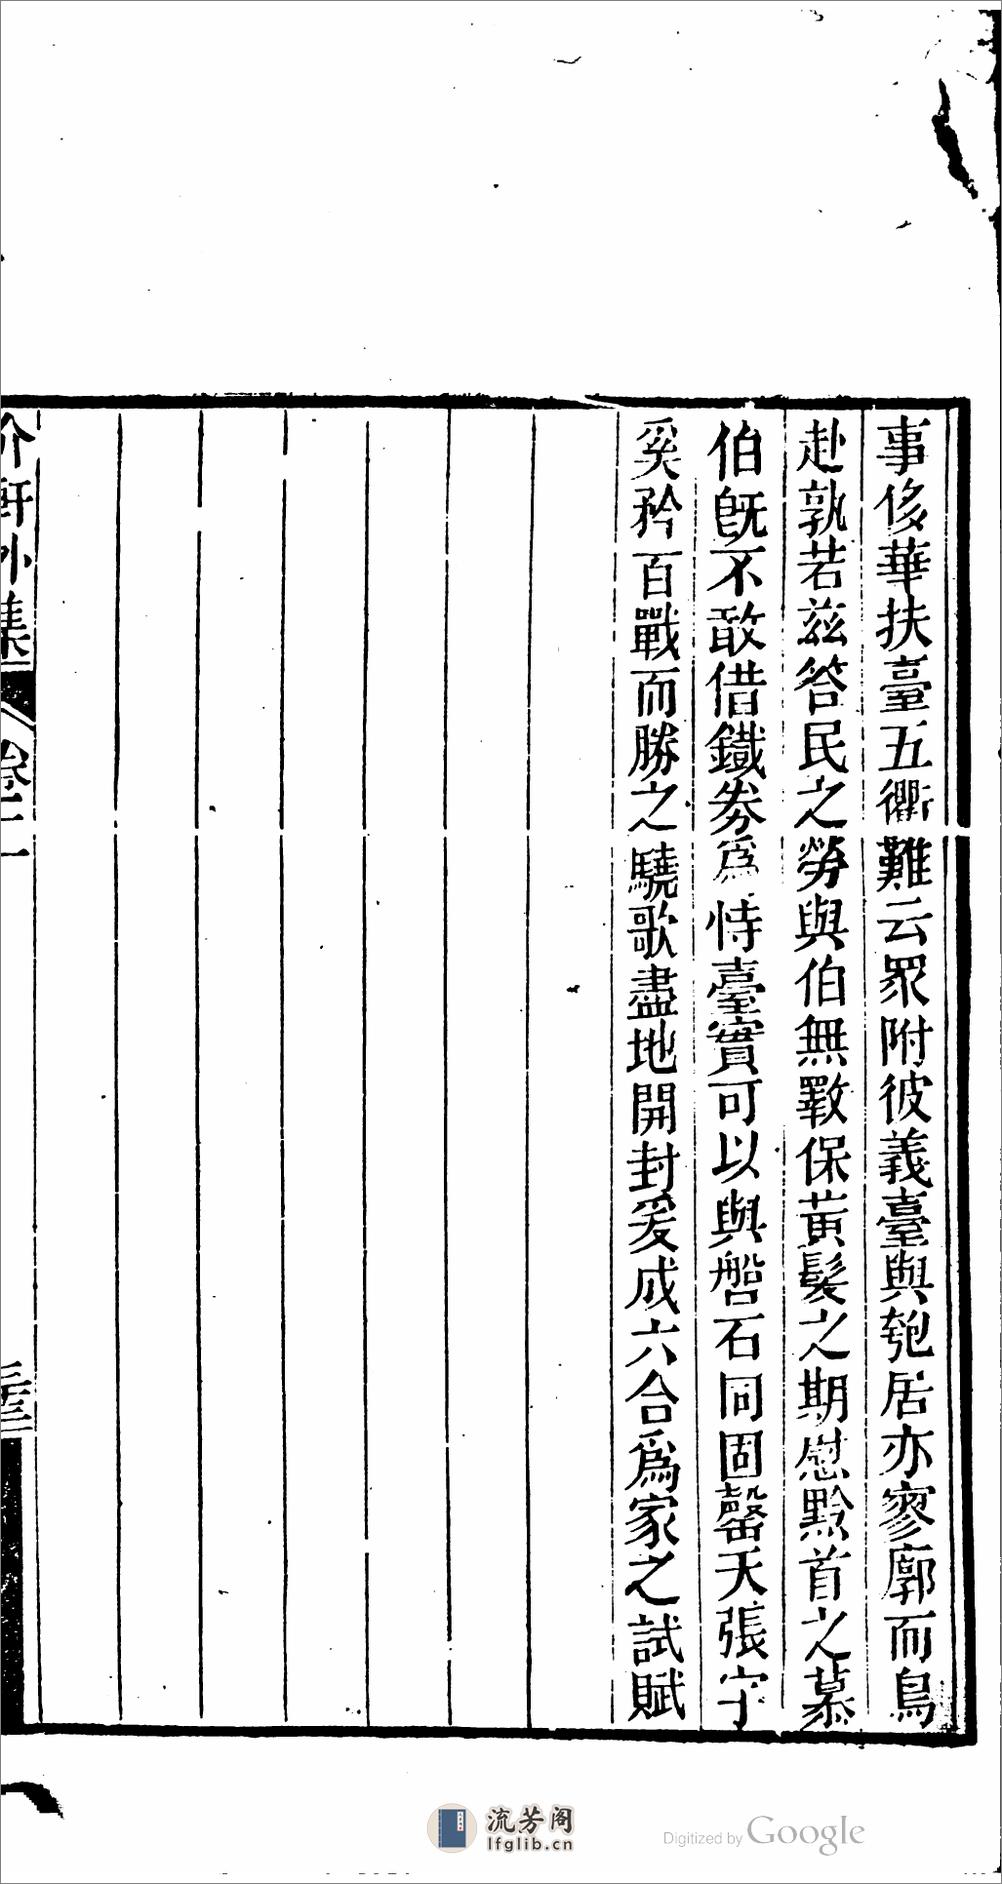 事侈華扶臺五衢難云眾附彼義臺與匏居亦寥廓而鳥
赴孰若兹答民之勞與伯無斁保黃髮之期慰黔首之慕
伯既不敢借鐵券爲恃臺實可以與磐石同固罄天張宇
奚矜百戰而勝之驍歌盡地開封爰成六合爲家之試賦
介軒外集
卷二
流芳阁
lfglib.cn
Digitized by Google